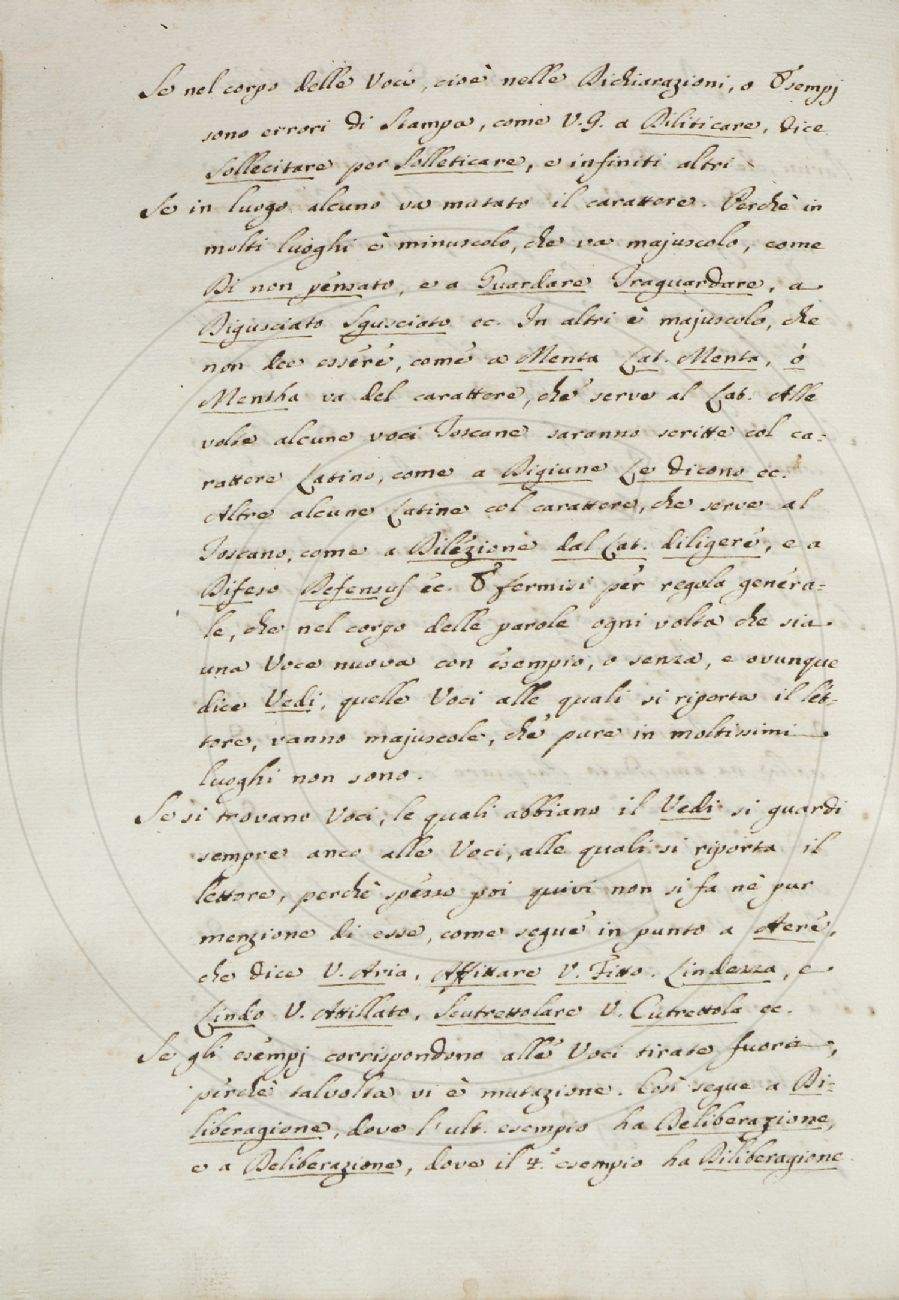 Se nel corpo delle Voci, cioè nelle Dichiarazioni, o Esempj
sono errori di Stampa, come V.G. a Diliticare, dice
Sollecitare per Solleticare, e infiniti altri
Se in luogo alcuno va mutato il carattere. Perchè in
molti luoghi è minuscolo, che va majuscolo, come
Di non pensato, e a Guardare Traguardare, a
Digusciato Sgusciato ec. In altri è majuscolo, che
non dee essere, come a Menta Lat. Menta, o
Mentha va del carattere, che serve al Lat. Alle
volte alcune voci Toscane saranno scritte col ca=
rattere Latino, come a Digiune Le dicono ec.
Altre alcune Latine col carattere, che serve al
Toscano, come a Dilezione dal Lat. diligere, e a
Difeso Defensus ec. E fermisi per regola genera=
le, che nel corpo delle parole ogni volta che sia
una Voce nuova con esempio, o senza, e ovunque
dice Vedi, quelle Voci alle quali si riporta il let=
tore, vanno majuscole, che pure in moltissimi
luoghi non sono.
Se si trovano Voci, le quali abbiano il Vedi si guardi
sempre anco alle Voci, alle quali si riporta il
lettore, perchè spesso poi quivi non si fa nè pur
menzione di esse, come segue in punto a Aere,
che dice V. Aria, Affittare V. Fitto. Lindezza, e
Lindo V. Attillato, Scutrettolare V. Cutrettola ec.
Se gli esempj corrispondono alle Voci tirate fuori,
perchè talvolta vi è mutazione. Così segue a Di=
liberagione, dove l'ult. esempio ha Deliberazione,
e a Deliberazione, dove il 4.° esempio ha Diliberagione